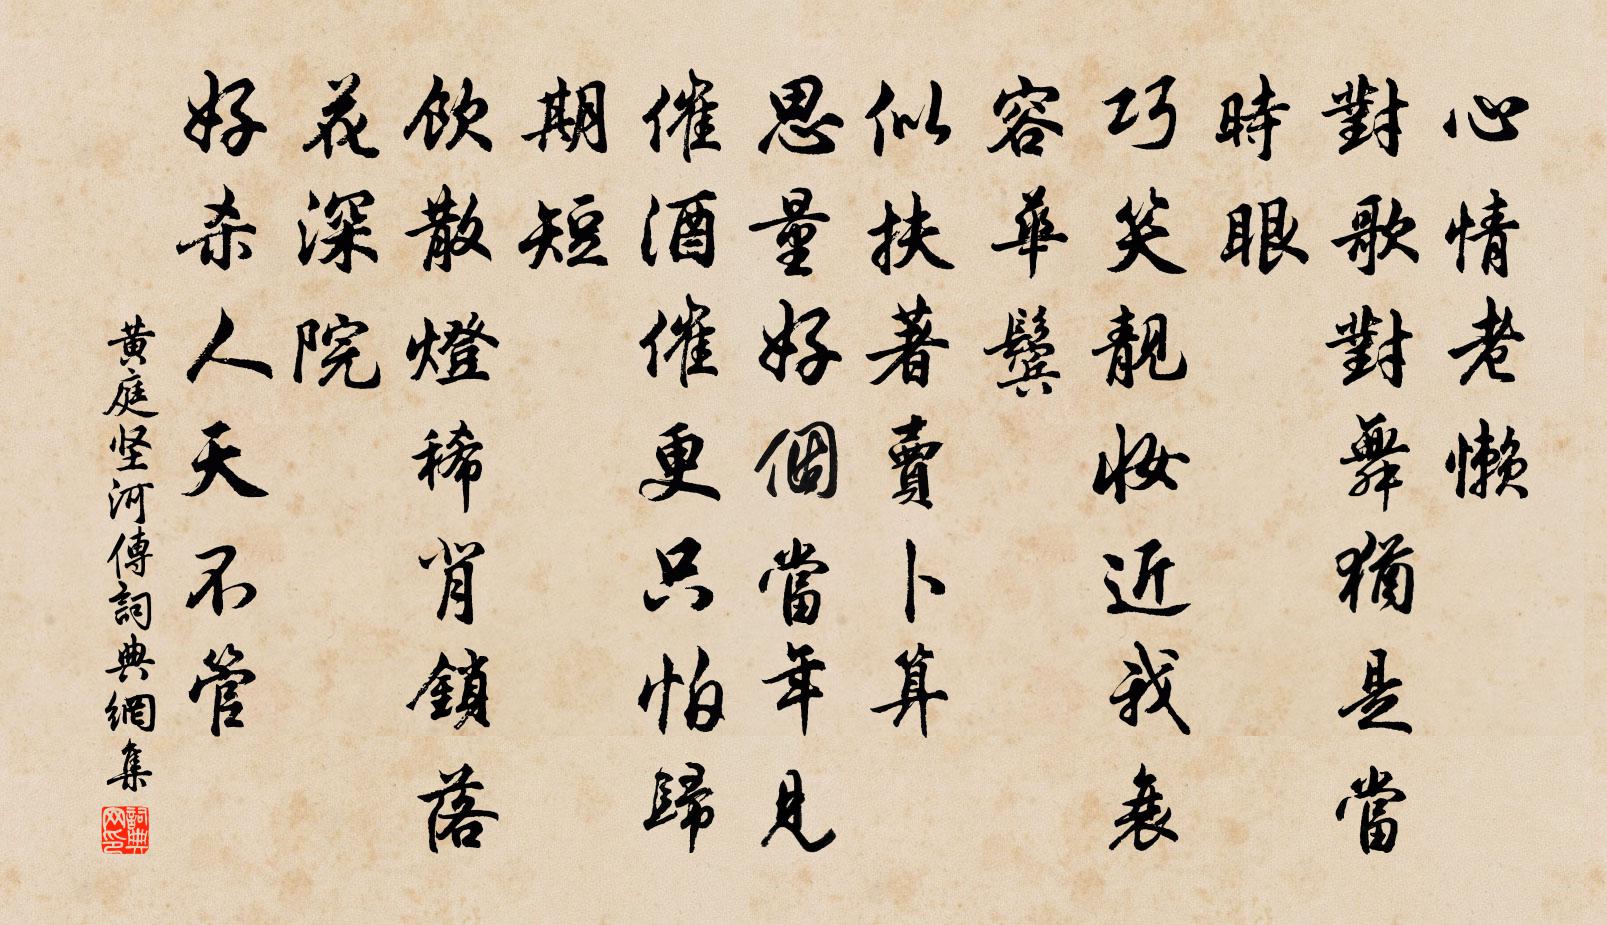 心情老懶
對歌對舞猶是當
時眼
巧笑靚妝近我衰
容華鬢
似扶著賣卜算
思量好個當年見
催酒催更只怕歸
期短
飲散燈稀肖鎖落
花深院
好杀人天不管
黄庭坚河傳詞典網集
詞典网印